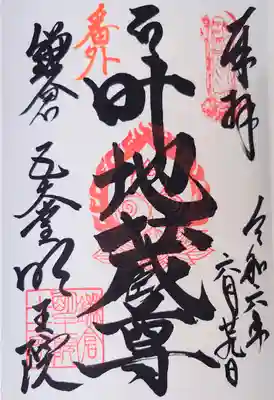 奉拝
令和六年
六月廿九日
叶地蔵尊
番外
鎌倉
五大堂明王院